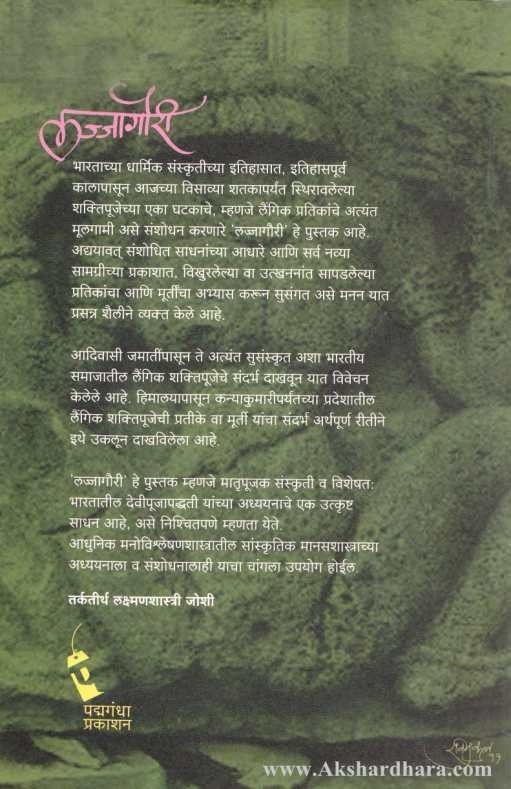 लज्जागौरी
भारताच्या धार्मिक संस्कृतीच्या इतिहासात, इतिहासपूर्व
कालापासून आजच्या विसाव्या शतकापर्यंत स्थिरावलेल्या
शक्तिपूजेच्या एका घटकाचे, म्हणजे लैंगिक प्रतिकांचे अत्यंत
मूलगामी असे संशोधन करणारे 'लज्जागौरी' हे पुस्तक आहे.
अद्ययावत् संशोधित साधनांच्या आधारे आणि सर्व नव्या
सामग्रीच्या प्रकाशात, विखुरलेल्या वा उत्खननांत सापडलेल्या
प्रतिकांचा आणि मूर्तींचा अभ्यास करून सुसंगत असे मनन यात
प्रसन्न शैलीने व्यक्त केले आहे.
आदिवासी जमातींपासून ते अत्यंत सुसंस्कृत अशा भारतीय
समाजातील लैंगिक शक्तिपूजेचे संदर्भ दाखवून यात विवेचन
केलेले आहे. हिमालयापासून कन्याकुमारीपर्यंतच्या प्रदेशातील
लैंगिक शक्तिपूजेची प्रतीके वा मूर्ती यांचा संदर्भ अर्थपूर्ण रीतीने
इथे उकलून दाखविलेला आहे.
'लज्जागौरी' हे पुस्तक म्हणजे मातृपूजक संस्कृती व विशेषतः
भारतातील देवीपूजापद्धती यांच्या अध्ययनाचे एक उत्कृष्ट
साधन आहे, असे निश्चितपणे म्हणता येते.
आधुनिक मनोविश्लेषणशास्त्रातील सांस्कृतिक मानसशास्त्राच्या
अध्ययनाला व संशोधनालाही याचा चांगला उपयोग होईल.
तर्कतीर्थ लक्ष्मणशास्त्री जोशी
पद्मगंधा
प्रकाशन
www.Akshardhara.com